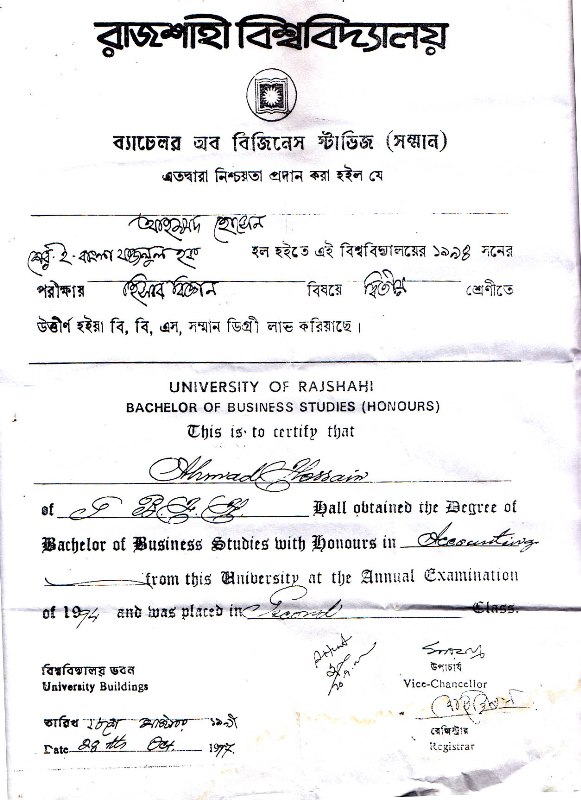 রাজশাহী বিশ্ববিদ্যালয়
ব্যাচেলর অব বিজিনেস স্টাডিজ (সম্মান)
এতদ্বারা নিশ্চয়তা প্রদান করা হইল যে
আহমদ হোসেন
শের-ই-বাংলা ফজলুল হক হল হইতে এই বিশ্ববিদ্যালয়ের ১৯৭৪ সনের
পরীক্ষায় হিসাব বিজ্ঞান বিষয়ে দ্বিতীয় শ্রেণীতে
উত্তীর্ণ হইয়া বি, বি, এস, সম্মান ডিগ্রী লাভ করিয়াছে।
UNIVERSITY OF RAJSHAHI
BACHELOR OF BUSINESS STUDIES (HONOURS)
This is to certify that
Ahmad Hossain
of Hall obtained the Degree of
Bachelor of Business Studies with Honours in Accounting
from this University at the Annual Examination
of 1974 and was placed in Second Class.
বিশ্ববিদ্যালয় ভবন
University Buildings
উপাচার্য
Vice-Chancellor
তারিখ ১৯
Date 29th Oct. 1977
রেজিষ্ট্রার
Registrar